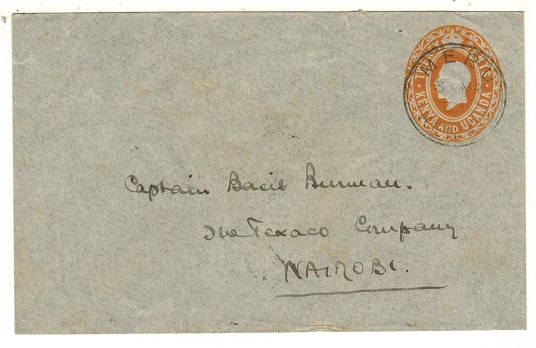 MERU
KENYA AND UGANDA
Captain Basil Burman.
The Texaco Company
NAIROBI.